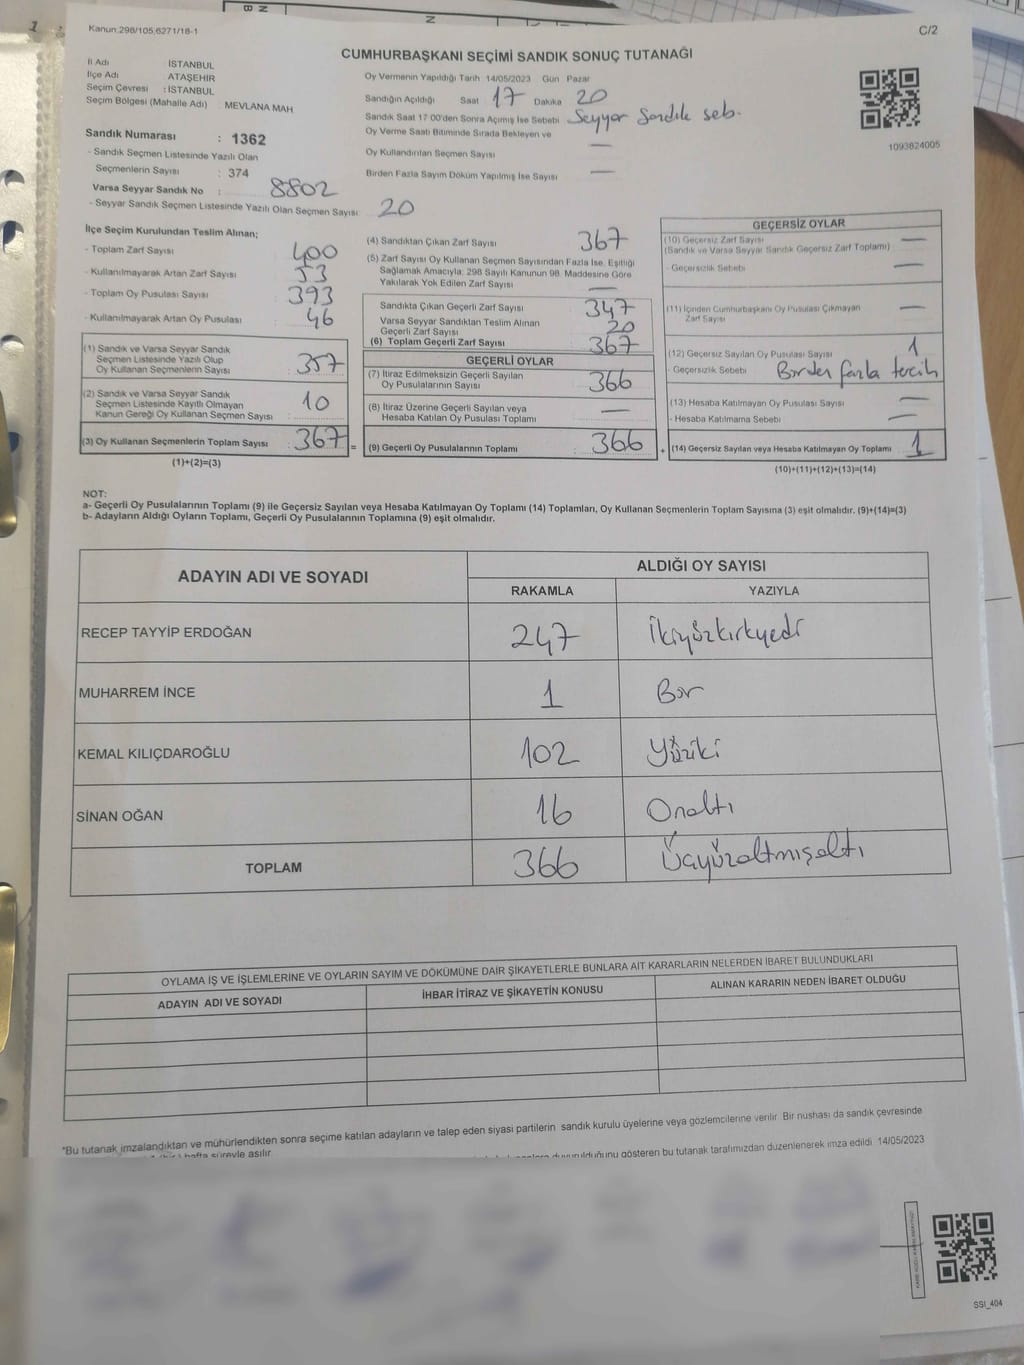 Kanun:298/105,6271/18-1
C/2
CUMHURBAŞKANI SEÇİMİ SANDIK SONUÇ TUTANAĞI
İl Adı İSTANBUL
İlçe Adı ATAŞEHİR
Seçim Çevresi : İSTANBUL
Seçim Bölgesi (Mahalle Adı) : MEVLANA MAH
Oy Vermenin Yapıldığı Tarih 14/05/2023 Gün Pazar
Sandığın Açıldığı Saat 17 Dakika 20
Sandık Saat 17:00'den Sonra Açılmış İse Sebebi Seyyar Sandık seb.
Oy Verme Saati Bitiminde Sırada Bekleyen ve
Oy Kullandırılan Seçmen Sayısı —
Birden Fazla Sayım Döküm Yapılmış İse Sayısı —
1093824005
Sandık Numarası : 1362
- Sandık Seçmen Listesinde Yazılı Olan
Seçmenlerin Sayısı : 374
Varsa Seyyar Sandık No : 8802
- Seyyar Sandık Seçmen Listesinde Yazılı Olan Seçmen Sayısı: 20
İlçe Seçim Kurulundan Teslim Alınan;
- Toplam Zarf Sayısı : 400
- Kullanılmayarak Artan Zarf Sayısı : 33
- Toplam Oy Pusulası Sayısı : 393
- Kullanılmayarak Artan Oy Pusulası : 46
(1) Sandık ve Varsa Seyyar Sandık
Seçmen Listesinde Yazılı Olup
Oy Kullanan Seçmenlerin Sayısı : 357
(2) Sandık ve Varsa Seyyar Sandık
Seçmen Listesinde Kayıtlı Olmayan
Kanun Gereği Oy Kullanan Seçmen Sayısı : 10
(3) Oy Kullanan Seçmenlerin Toplam Sayısı : 367 =
(1)+(2)=(3)
(4) Sandıktan Çıkan Zarf Sayısı 367
(5) Zarf Sayısı Oy Kullanan Seçmen Sayısından Fazla İse, Eşitliği
Sağlamak Amacıyla, 298 Sayılı Kanunun 98. Maddesine Göre
Yakılarak Yok Edilen Zarf Sayısı : —
Sandıkta Çıkan Geçerli Zarf Sayısı : 347
Varsa Seyyar Sandıktan Teslim Alınan
Geçerli Zarf Sayısı : 20
(6) Toplam Geçerli Zarf Sayısı : 367
GEÇERLİ OYLAR
(7) İtiraz Edilmeksizin Geçerli Sayılan
Oy Pusulalarının Sayısı : 366
(8) İtiraz Üzerine Geçerli Sayılan veya
Hesaba Katılan Oy Pusulası Toplamı : —
(9) Geçerli Oy Pusulalarının Toplamı : 366 +
GEÇERSİZ OYLAR
(10) Geçersiz Zarf Sayısı —
(Sandık ve Varsa Seyyar Sandık Geçersiz Zarf Toplamı)
- Geçersizlik Sebebi —
(11) İçinden Cumhurbaşkanı Oy Pusulası Çıkmayan
Zarf Sayısı —
(12) Geçersiz Sayılan Oy Pusulası Sayısı : 1
- Geçersizlik Sebebi : Birden fazla tercih
(13) Hesaba Katılmayan Oy Pusulası Sayısı : —
- Hesaba Katılmama Sebebi : —
(14) Geçersiz Sayılan veya Hesaba Katılmayan Oy Toplamı : 1
(10)+(11)+(12)+(13)=(14)
NOT:
a- Geçerli Oy Pusulalarının Toplamı (9) ile Geçersiz Sayılan veya Hesaba Katılmayan Oy Toplamı (14) Toplamları, Oy Kullanan Seçmenlerin Toplam Sayısına (3) eşit olmalıdır. (9)+(14)=(3)
b- Adayların Aldığı Oyların Toplamı, Geçerli Oy Pusulalarının Toplamına (9) eşit olmalıdır.
ADAYIN ADI VE SOYADI ALDIĞI OY SAYISI
RAKAMLA YAZIYLA
RECEP TAYYİP ERDOĞAN 247 İkiyüzkırkyedi
MUHARREM İNCE 1 Bir
KEMAL KILIÇDAROĞLU 102 Yüziki
SİNAN OĞAN 16 Onaltı
TOPLAM 366 Üçyüzaltmışaltı
OYLAMA İŞ VE İŞLEMLERİNE VE OYLARIN SAYIM VE DÖKÜMÜNE DAİR ŞİKAYETLERLE BUNLARA AİT KARARLARIN NELERDEN İBARET BULUNDUKLARI
ADAYIN ADI VE SOYADI İHBAR İTİRAZ VE ŞİKAYETİN KONUSU ALINAN KARARIN NEDEN İBARET OLDUĞU
*Bu tutanak imzalandıktan ve mühürlendikten sonra seçime katılan adayların ve talep eden siyasi partilerin sandık kurulu üyelerine veya gözlemcilerine verilir. Bir nushası da sandık çevresinde
hafta süreyle asılır.
duyurulduğunu gösteren bu tutanak tarafımızdan düzenlenerek imza edildi. 14/05/2023
SSI_404